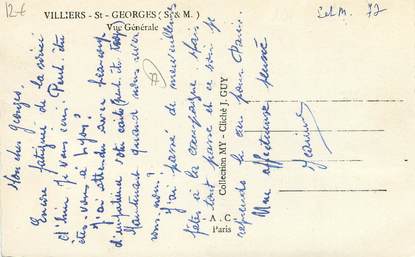 12-€
VILLIERS - St - GEORGES (S. & M.)
Vue Générale
S et M. 77
Mon cher Georges.
Encore fatiguée de la soirée
d'hier je vous écris. Peut être
êtes-vous à Lyon?
J'ai attendu avec beaucoup
d'impatience votre carte (peut être trop)
Maintenant quand nous
J'ai passé de merveilleuses
fêtes à la campagne. Mais
tout passe et ce soir je
reprends le car pour Paris.
Mon affectueuse pensée
Jeanne
Collection MY - Cliché J. GUY
A. C.
Paris